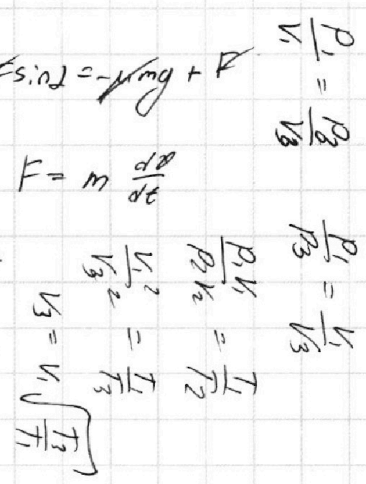 Fsinα = -μmg + F
F = m dv/dt
p₁/V₁ = p₃/V₃
p₁/p₃ = V₁/V₃
p₁V₁/p₂V₂ = T₁/T₂
V₁²/V₃² = T₁/T₃
V₃ = V₁√(T₃/T₁)